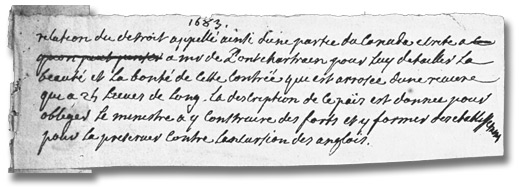 1683.
relation du detroit appellé ainsi d'une partie du Canada ecrite a la
a mr de Pontchartrain pour luy detailler la
beauté et la bonté de cette Contrée que est arrosée d'une riviere
que a 25 lieues de long. la description de ce païs est donnée pour
obliger le ministre a y construire des forts et y former
pour la preserver contre l'incursion des anglois.